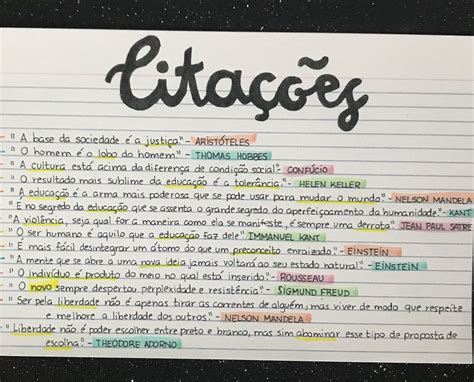 Citações
- "A base da sociedade é a justiça" - ARISTÓTELES
- "O homem é o lobo do homem" - THOMAS HOBBES
- "A cultura está acima da diferença de condição social" - CONFÚCIO
- "O resultado mais sublime da educação é a tolerância." - HELEN KELLER
- "A educação é a arma mais poderosa que se pode usar para mudar o mundo" - NELSON MANDELA
- "É no segredo da educação que se assenta o grande segredo do aperfeiçoamento da humanidade" - KANT
- "A violência, seja qual for a maneira como ela se manifeste, é sempre uma derrota" JEAN PAUL SATRE
- "O ser humano é aquilo que a educação faz dele" IMMANUEL KANT
- "É mais fácil desintegrar um átomo do que um preconceito enraizado." - EINSTEIN
- "A mente que se abre a uma nova ideia jamais voltará ao seu estado natural." - EINSTEIN
- "O indivíduo é produto do meio no qual está inserido." - ROUSSEAU
- "O novo sempre despertou perplexidade e resistência." - SIGMUND FREUD
- "Ser pela liberdade não é apenas tirar as correntes de alguém, mas viver de modo que respeite
e melhore a liberdade dos outros." - NELSON MANDELA
- "Liberdade não é poder escolher entre preto e branco, mas sim abominar esse tipo de proposta de
escolha." - THEODORE ADORNO